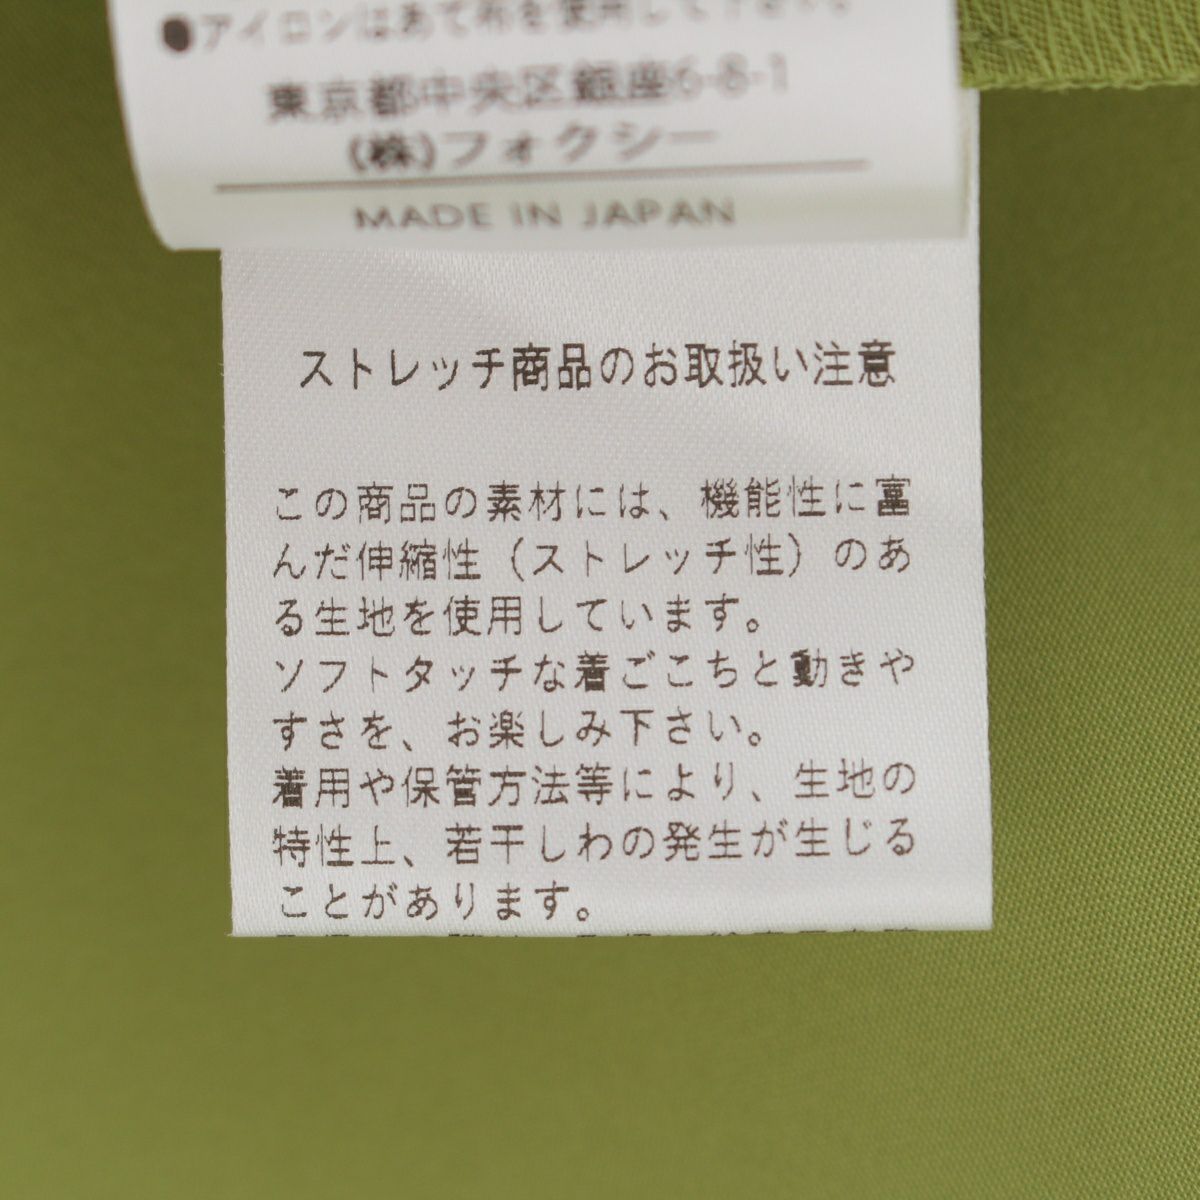 ●アイロンはあて布を使用して下さい。
東京都中央区銀座6-8-1
(株)フォクシー
MADE IN JAPAN
ストレッチ商品のお取扱い注意
この商品の素材には、機能性に富
んだ伸縮性（ストレッチ性）のあ
る生地を使用しています。
ソフトタッチな着ごこちと動きや
すさを、お楽しみ下さい。
着用や保管方法等により、生地の
特性上、若干しわの発生が生じる
ことがあります。